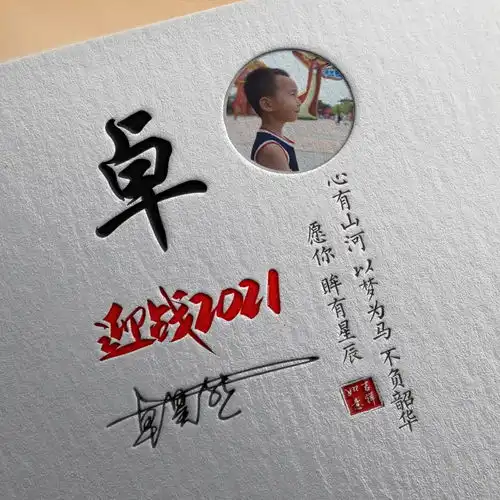 卓
迎战2021
心有山河 以梦为马 不负韶华
愿你 眸有星辰